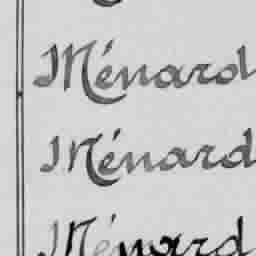 Ménard
Ménard
Ménard